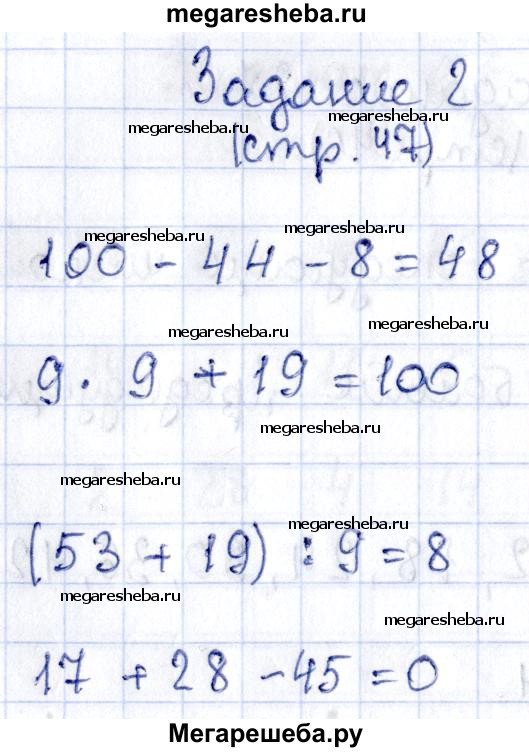 megaresheba.ru
Задание 2
megaresheba.ru
megaresheba.ru
(стр. 47)
megaresheba.ru
megaresheba.ru
100 - 44 - 8 = 48
megaresheba.ru
megaresheba.ru
9 · 9 + 19 = 100
megaresheba.ru
megaresheba.ru
megaresheba.ru
(53 + 19) : 9 = 8
megaresheba.ru
megaresheba.ru
17 + 28 - 45 = 0
Мегарешеба.ру